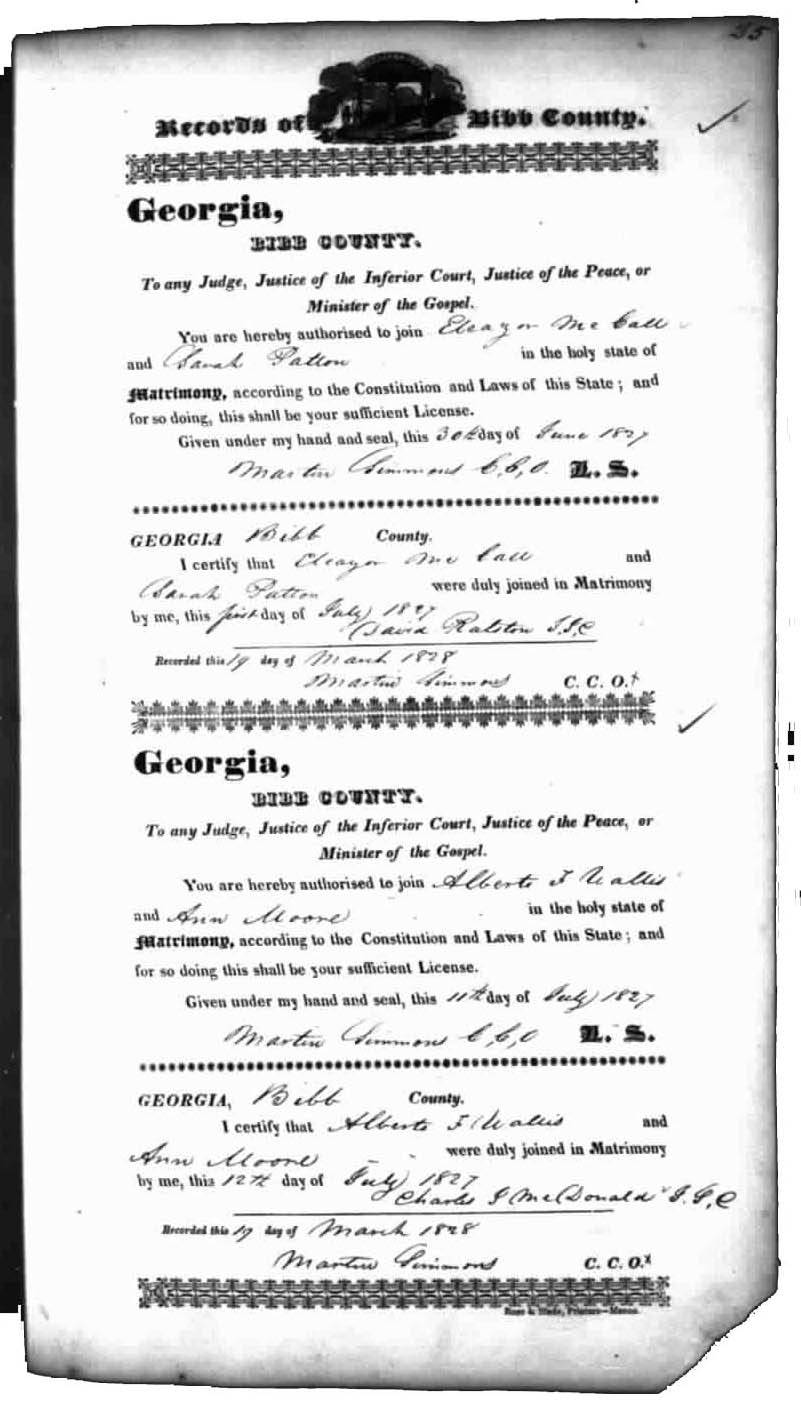 35
Records of Bibb County.
Georgia,
BIBB COUNTY.
To any Judge, Justice of the Inferior Court, Justice of the Peace, or
Minister of the Gospel.
You are hereby authorised to join Eleazor Mc Call
and Sarah Patton in the holy state of
Matrimony, according to the Constitution and Laws of this State; and
for so doing, this shall be your sufficient License.
Given under my hand and seal, this 30th day of June 1827
Martin Simmons C,C,O. L. S.
GEORGIA Bibb County.
I certify that Eleazor Mc Call and
Sarah Patton were duly joined in Matrimony
by me, this first day of July 1827
David Ralston J.I.C
Recorded this 19 day of March 1828
Martin Simmons C. C. O.
Georgia,
BIBB COUNTY.
To any Judge, Justice of the Inferior Court, Justice of the Peace, or
Minister of the Gospel.
You are hereby authorised to join Alberto F Wallis
and Ann Moore in the holy state of
Matrimony, according to the Constitution and Laws of this State; and
for so doing this shall be your sufficient License.
Given under my hand and seal, this 11th day of July 1827
Martin Simmons C,C,O L. S.
GEORGIA, Bibb County.
I certify that Alberto F Wallis and
Ann Moore were duly joined in Matrimony
by me, this 12th day of July 1827
Charles J McDonald J.S,C
Recorded this 19 day of March 1828
Martin Simmons C. C. O.
Printers—Macon.